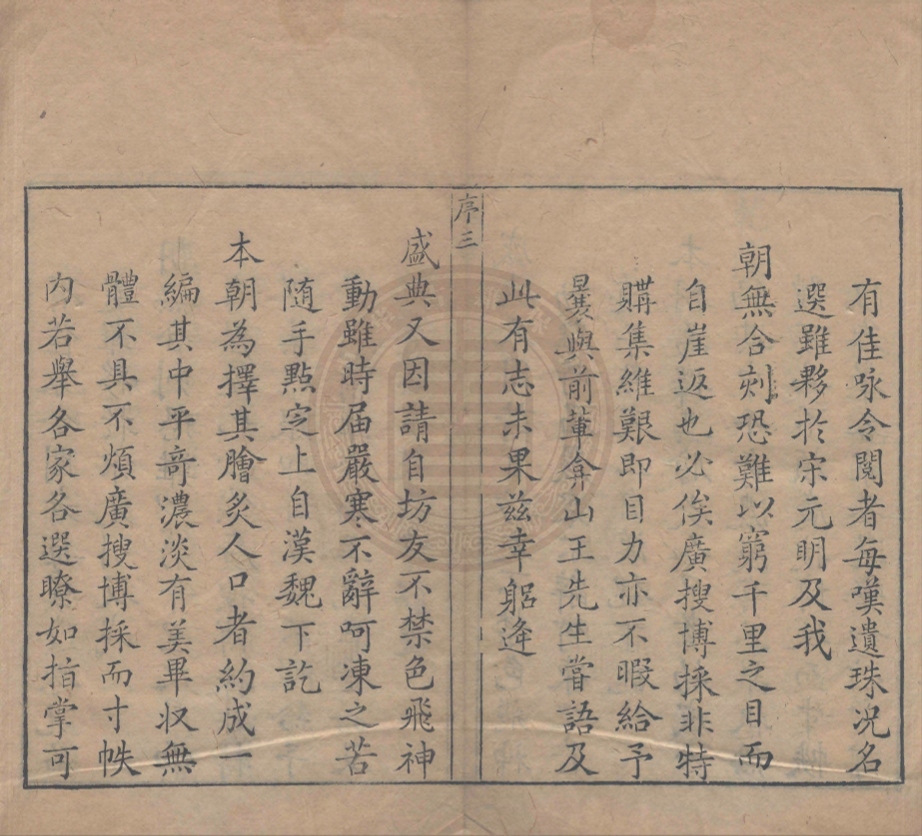 有佳咏令閱者每嘆遺珠况名
選雖夥扵宋元明及我
朝無合刻恐難以窮千里之目而
自崖返也必俟廣搜博採非特
購集維艱即目力亦不暇給予
曩與前輩弇山王先生嘗語及
此有志未果兹幸躬逢
序三
盛典又因請自坊友不禁色飛神
動雖時届嚴寒不辭呵凍之苦
随手點定上自漢魏下訖
本朝為擇其膾炙人口者約成一
編其中平竒濃淡有美畢収無
體不具不煩廣搜博採而寸帙
内若舉各家各選瞭如指掌可